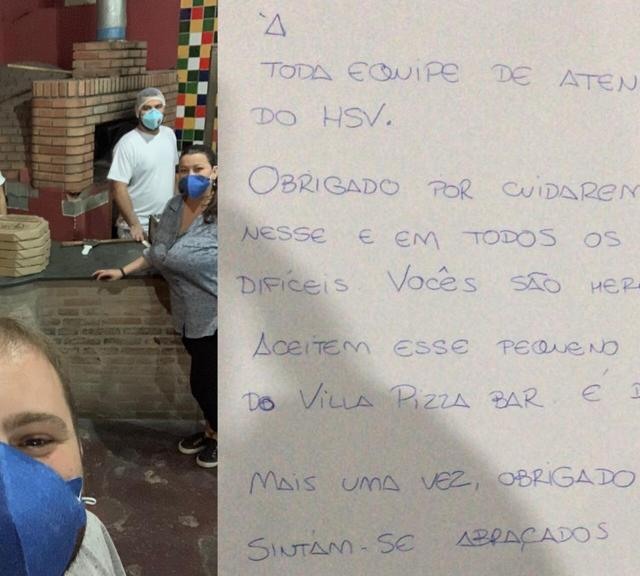 À
TODA EQUIPE DE ATEN
DO HSV.
OBRIGADO POR CUIDAREM
NESSE E EM TODOS OS
DIFÍCEIS. VOCÊS SÃO HER
ACEITEM ESSE PEQUENO
DO VILLA PIZZA BAR. É D
MAIS UMA VEZ, OBRIGADO
SINTAM-SE ABRAÇADOS